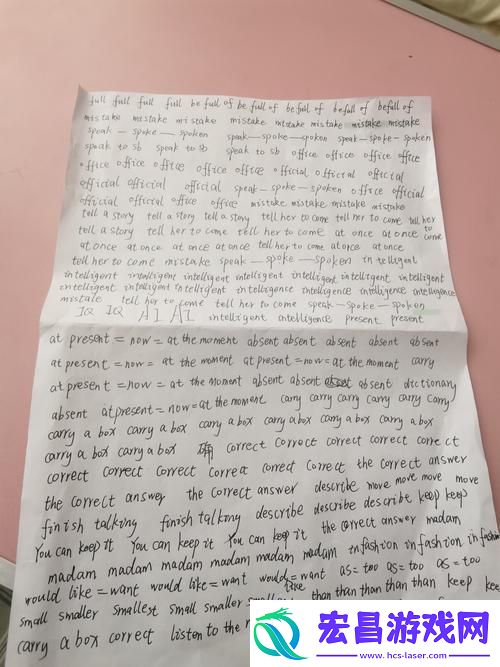 full full full full be full of be full of be full of be full of befull of
mistake mistake mistake mistake mistake mistake mistake mistake
speak — spoke — spoken speak — spoke — spoken speak — spoke — spoken
speak to sb speak to sb speak to sb office office office office
office office office office office official official official
official official official speak — spoke — spoken office official
official official office office mistake mistake mistake mistake
tell a story tell a story tell a story tell her to come tell her to come tell her to come
tell a story tell her to come tell her to come at once at once
at once at once at once at once tell her to come at once at once
tell her to come mistake speak — spoke — spoken intelligent
intelligent intelligent intelligent intelligent intelligent intelligent intelligent
intelligent intelligent intelligent intelligence intelligence intelligence intelligence
mistake tell her to come tell her to come speak — spoke — spoken
IQ IQ AI AI intelligent intelligence present present
at present = now = at the moment absent absent absent absent absent
at present = now = at the moment at present = now = at the moment carry
at present = now = at the moment absent absent absent dictionary
absent at present = now = at the moment carry carry carry carry carry carry
carry a box carry a box carry a box carry a box carry a box carry a box
carry a box carry a box 确 correct correct correct correct correct
correct correct correct correct correct correct the correct answer
the correct answer the correct answer describe move move move move
finish talking finish talking describe describe describe keep keep
You can keep it You can keep it You can keep it the correct answer madam
madam madam madam madam madam madam in fashion in fashion in fashion
would like = want would like = want would like = want as = too as = too as = too
small smaller smallest small smaller than than than than than keep
carry a box correct listen to the
宏昌游戏网
www.hcs-laser.com